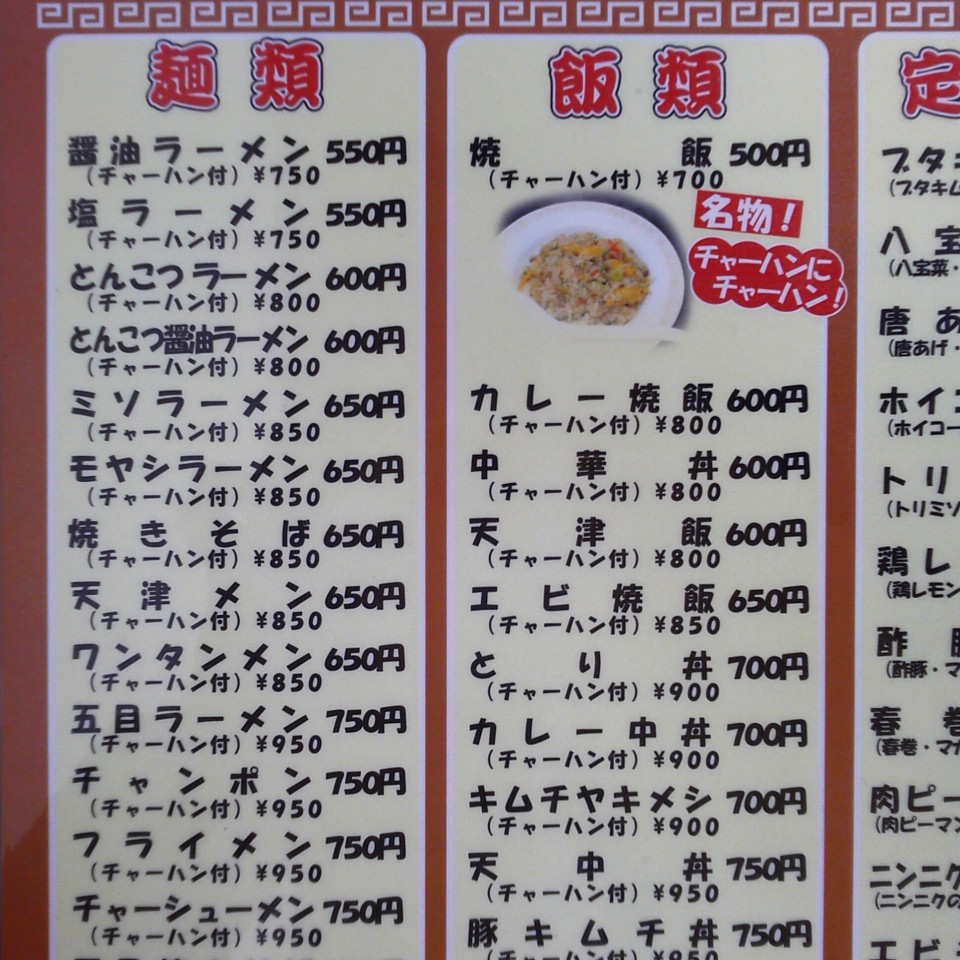 麺類
醤油ラーメン 550円
（チャーハン付）¥750
塩ラーメン 550円
（チャーハン付）¥750
とんこつラーメン 600円
（チャーハン付）¥800
とんこつ醤油ラーメン 600円
（チャーハン付）¥800
ミソラーメン 650円
（チャーハン付）¥850
モヤシラーメン 650円
（チャーハン付）¥850
焼きそば 650円
（チャーハン付）¥850
天津メン 650円
（チャーハン付）¥850
ワンタンメン 650円
（チャーハン付）¥850
五目ラーメン 750円
（チャーハン付）¥950
チャンポン 750円
（チャーハン付）¥950
フライメン 750円
（チャーハン付）¥950
チャーシューメン 750円
（チャーハン付）¥950
飯類
焼飯 500円
（チャーハン付）¥700
名物！
チャーハンに
チャーハン！
カレー焼飯 600円
（チャーハン付）¥800
中華丼 600円
（チャーハン付）¥800
天津飯 600円
（チャーハン付）¥800
エビ焼飯 650円
（チャーハン付）¥850
とり丼 700円
（チャーハン付）¥900
カレー中丼 700円
（チャーハン付）¥900
キムチヤキメシ 700円
（チャーハン付）¥900
天中丼 750円
（チャーハン付）¥950
豚キムチ丼 750円
（チャーハン付）¥950
定
ブタキ
（ブタキム
八宝
（八宝菜・
唐あ
（唐あげ・
ホイコ
（ホイコー
トリ
（トリミソ
鶏レ
（鶏レモン
酢豚
（酢豚・マ
春巻
（春巻・マカ
肉ピー
（肉ピーマン
ニンニク
（ニンニクの
エビ